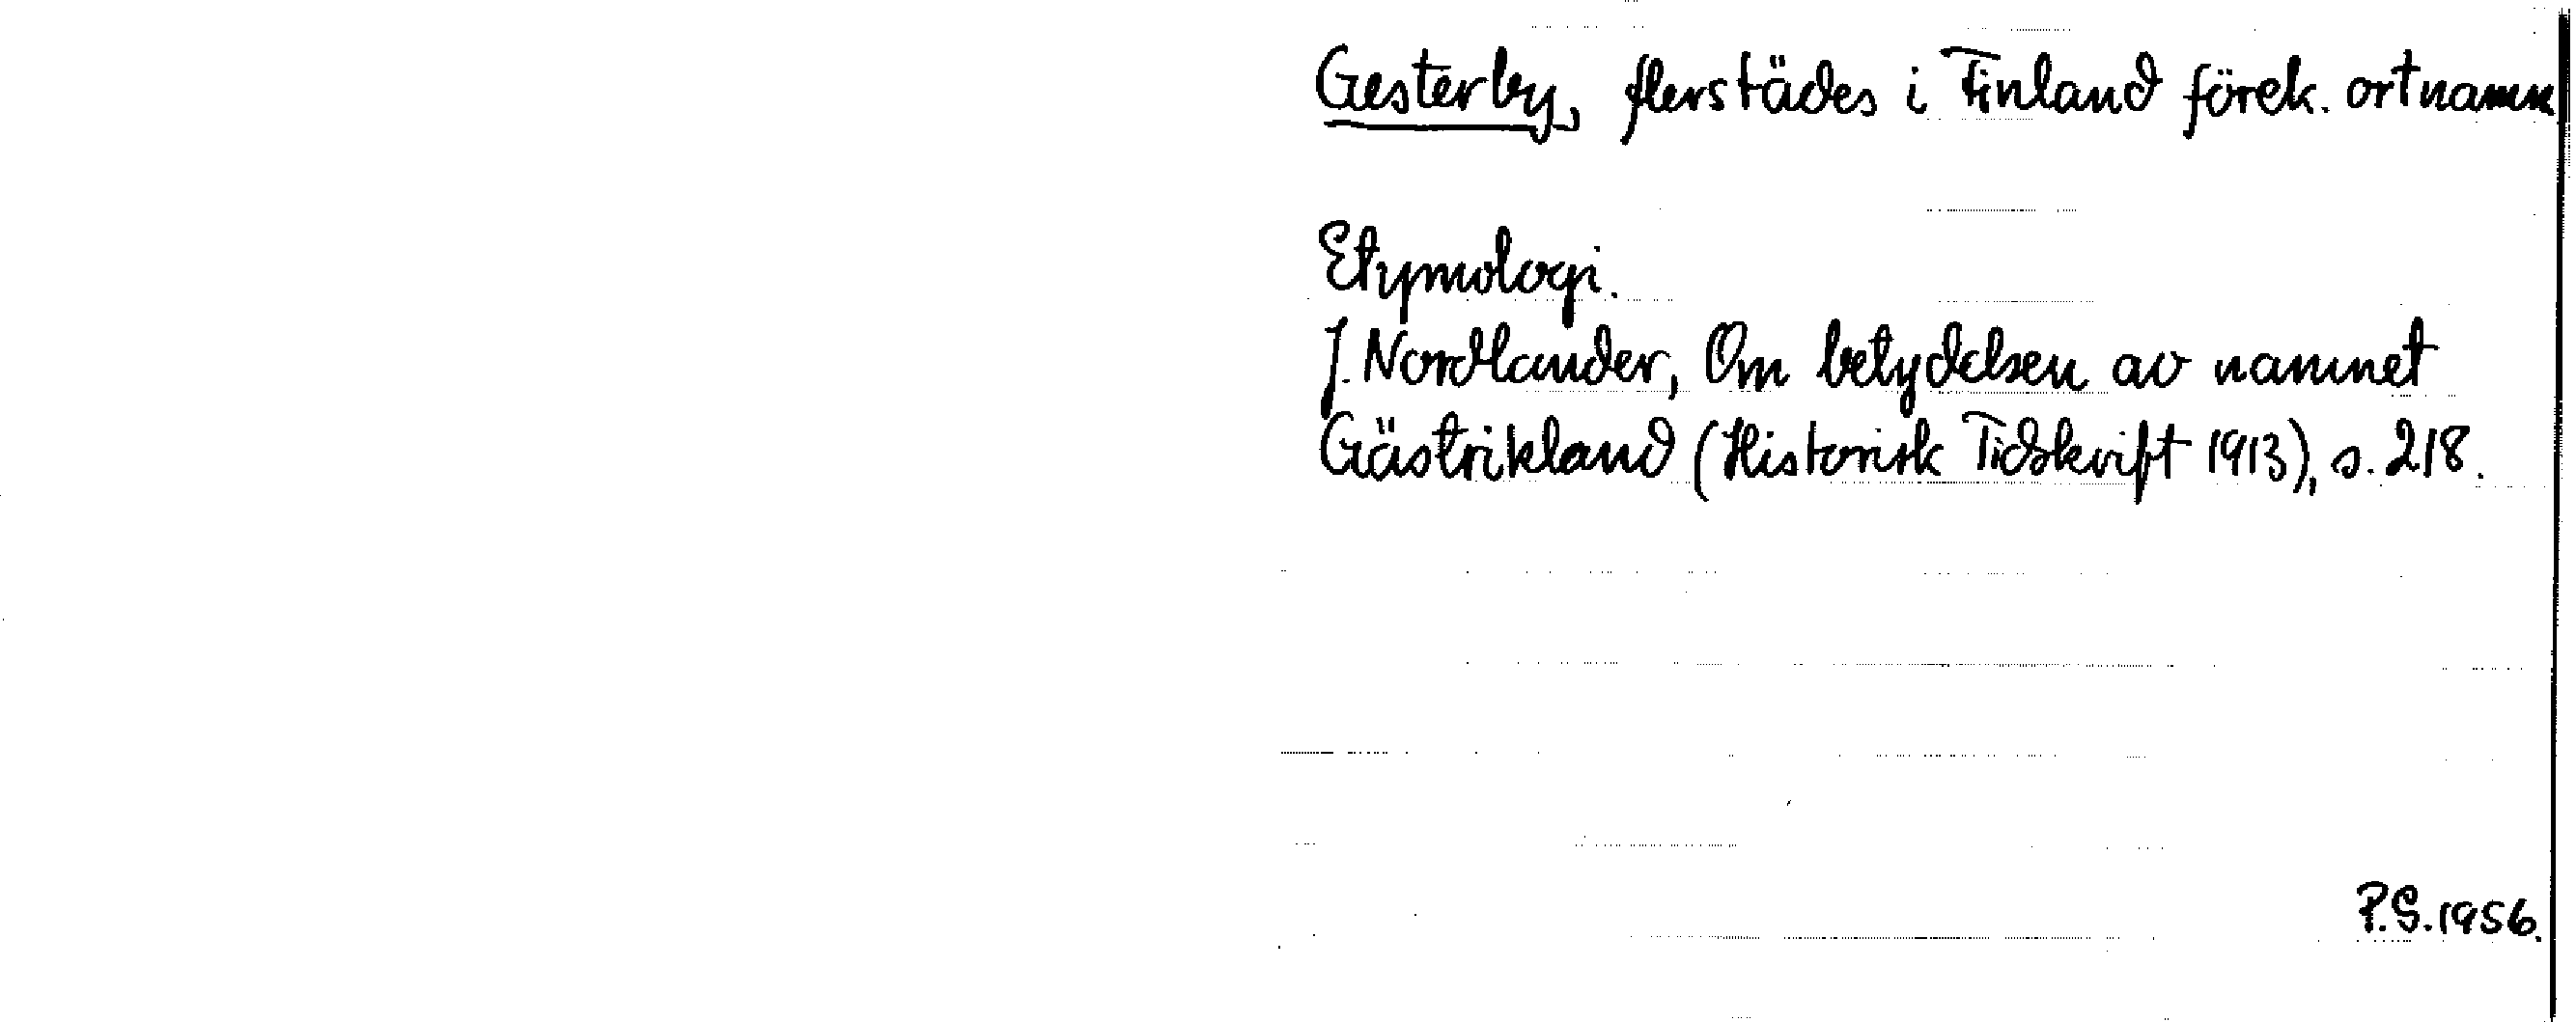 Gesterby, flerstädes i Finland förek. ortnamn
Etymologi.
J. Nordlander, Om betydelsen av namnet
Gästrikland (Historisk Tidskrift 1913), s. 218.
P.S. 1956.